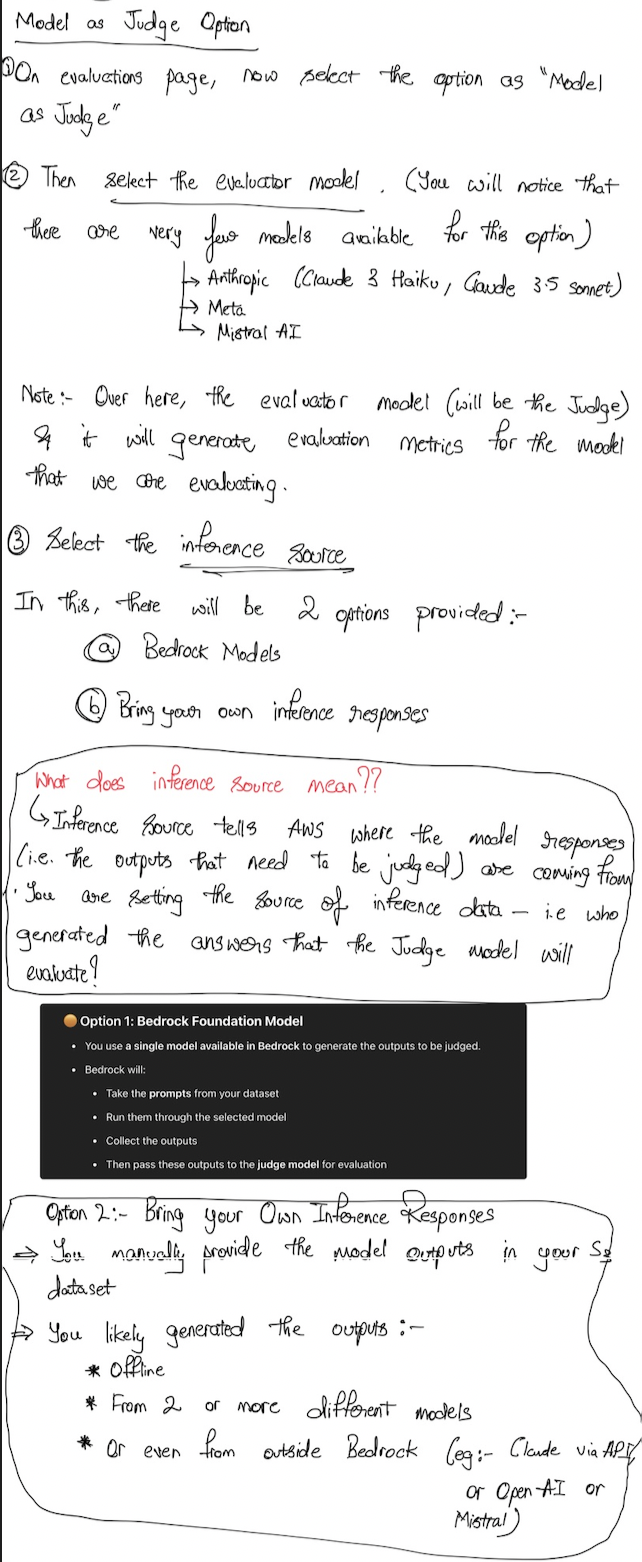 Model as Judge Option
① On evaluations page, now select the option as "Model
as Judge"
② Then select the evaluator model. (You will notice that
there are very few models available for this option)
↳ Anthropic (Claude 3 Haiku, Claude 3.5 sonnet)
↳ Meta
↳ Mistral AI
Note:- Over here, the evaluator model (will be the Judge)
& it will generate evaluation metrics for the model
that we are evaluating.
③ Select the inference source
In this, there will be 2 options provided:-
ⓐ Bedrock Models
ⓑ Bring your own inference responses
What does inference source mean??
↳ Inference Source tells AWS where the model responses
(i.e. the outputs that need to be judged) are coming from
. You are setting the source of inference data - i.e who
generated the answers that the Judge model will
evaluate?
Option 1: Bedrock Foundation Model
• You use a single model available in Bedrock to generate the outputs to be judged.
• Bedrock will:
• Take the prompts from your dataset
• Run them through the selected model
• Collect the outputs
• Then pass these outputs to the judge model for evaluation
Option 2:- Bring your Own Inference Responses
⇒ You manually provide the model outputs in your S3
dataset
⇒ You likely generated the outputs:-
* Offline
* From 2 or more different models
* Or even from outside Bedrock (eg:- Claude via API,
or Open-AI or
Mistral)